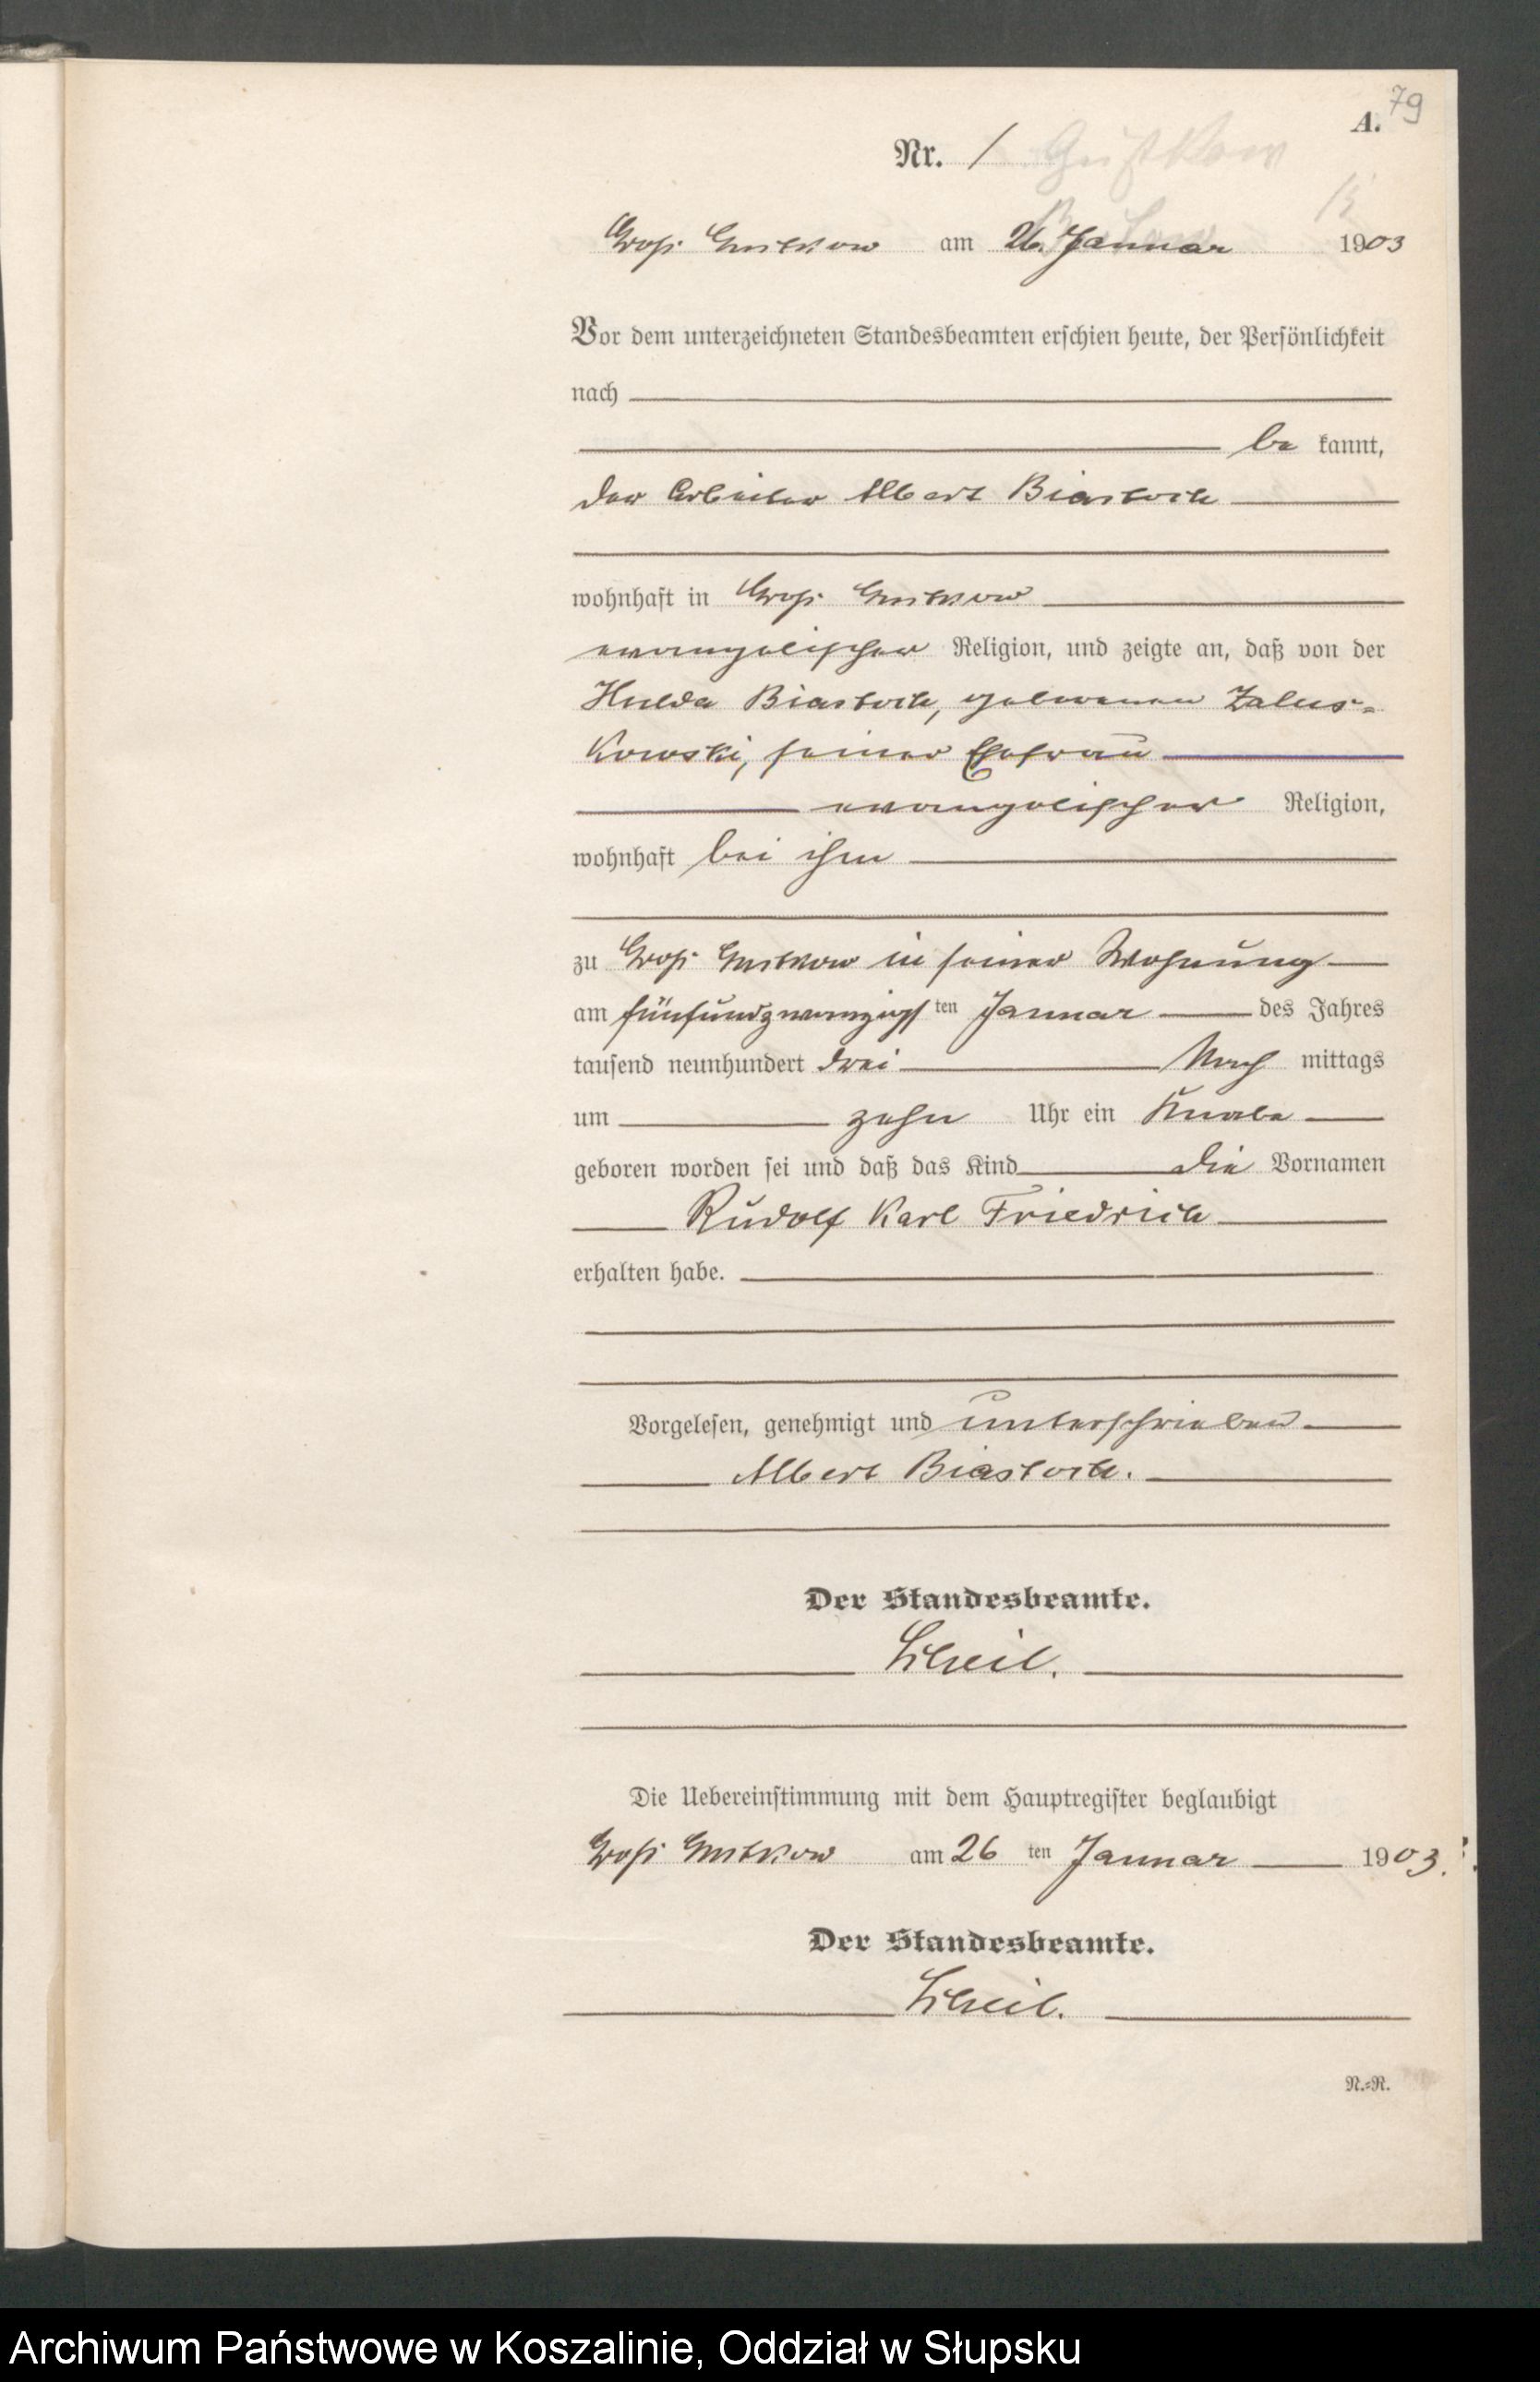 79
A.
Nr. 1 Gustkow
Groß Gustkow am 26. Januar 1903
Vor dem unterzeichneten Standesbeamten erschien heute, der Persönlichkeit
nach
be kannt,
der Arbeiter Albert Biastoch
wohnhaft in Groß Gustkow
evangelischer Religion, und zeigte an, daß von der
Hulda Biastoch, geborenen Zalus-
kowski, seiner Ehefrau
evangelischer Religion,
wohnhaft bei ihm
zu Groß Gustkow in seiner Wohnung
am fünfundzwanzigs ten Januar des Jahres
tausend neunhundert drei Nach mittags
um zehn Uhr ein Knabe
geboren worden sei und daß das Kind die Vornamen
Rudolf Karl Friedrich
erhalten habe.
Vorgelesen, genehmigt und unterschrieben
Albert Biastoch.
Der Standesbeamte.
Scheil.
Die Uebereinstimmung mit dem Hauptregister beglaubigt
Groß Gustkow am 26 ten Januar 1903.
Der Standesbeamte.
Scheil.
N.=R.
Archiwum Państwowe w Koszalinie, Oddział w Słupsku